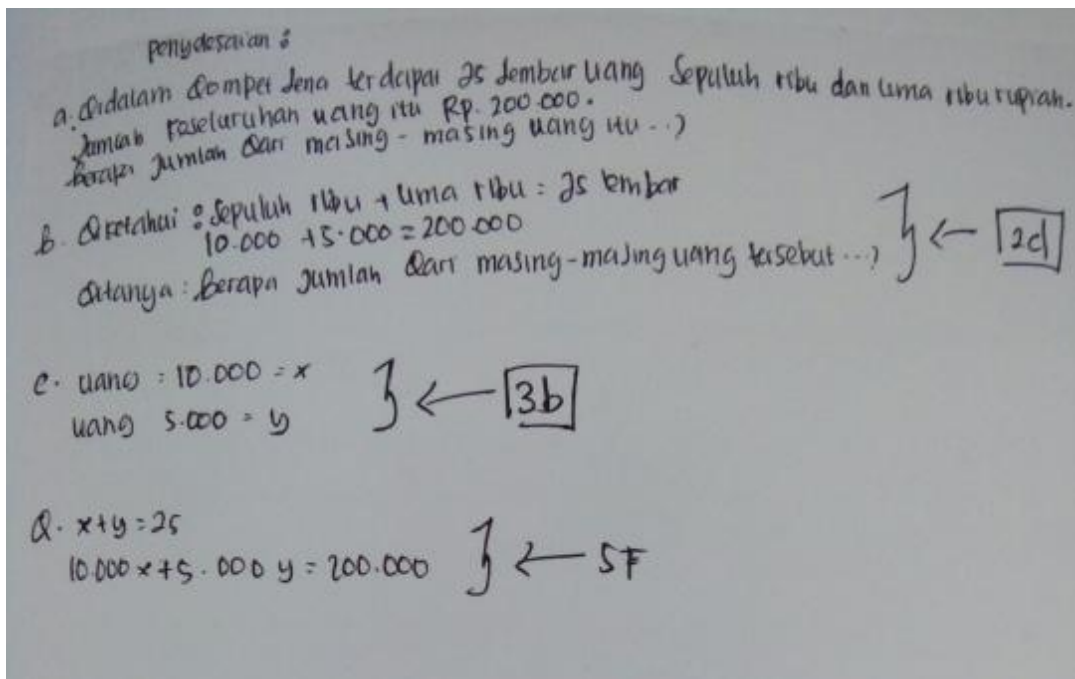 penyelesaian :
a. Didalam Dompet Dena terdapat 25 lembar uang Sepuluh ribu dan lima ribu rupiah.
Jumlah keseluruhan uang itu Rp. 200.000.
berapa jumlah Dari masing - masing uang itu ..?
b. Diketahui : Sepuluh ribu + lima ribu = 25 lembar
10.000 + 5.000 = 200.000
Ditanya : berapa Jumlah Dari masing-masing uang tersebut ...? ← 2d
c. uang : 10.000 = x
uang 5.000 = y ← 3b
D. x+y = 25
10.000 x + 5.000 y = 200.000 ← SF